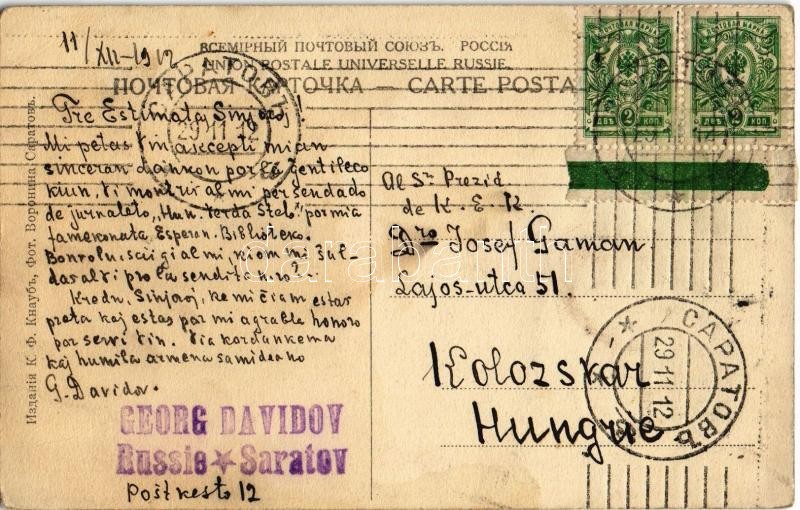 11/XII-1912
ВСЕМІРНЫЙ ПОЧТОВЫЙ СОЮЗЪ. РОССІЯ
UNION POSTALE UNIVERSELLE RUSSIE.
ПОЧТОВАЯ КАРТОЧКА — CARTE POSTA
ПОЧТОВАЯ МАРКА
2
ДВѢ КОП.
ПОЧТОВАЯ МАРКА
2
ДВѢ КОП.
САРАТОВЪ
29 11 12
Tre Estimata Sinjoro,
Mi petas Vin akcepti mian
sinceran dankon por la gentileco
kiun Vi montris al mi per sendado
de jurnalalo „Hun. Verda Stelo" por mia
famekonata Esperan. Biblioteko.
Bonvolu sciigi al mi, kiom mi ŝul-
das al Vi pro la sendita n-ro?
Kredu, Sinjoro, ke mi ĉiam estas
preta kaj estas por mi agrabla honoro
por servi Vin. Via kordankema
kaj humila armena samideano
G. Davidov.
GEORG DAVIDOV
Russie ★ Saratov
Poŝtkesto 12
Al Sro Prezid
de K. E. K.
Dro Josef Gaman
Lajos-utca 51.
Kolozsvar
Hungue
САРАТОВЪ
29 11 12
Изданія К. Ф. Кнаубъ, Фот. Воронина, Саратовъ.
darabanth